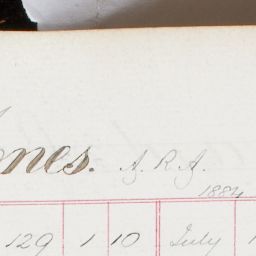 ones. A. R. A.
1884
129 1 10 July 1